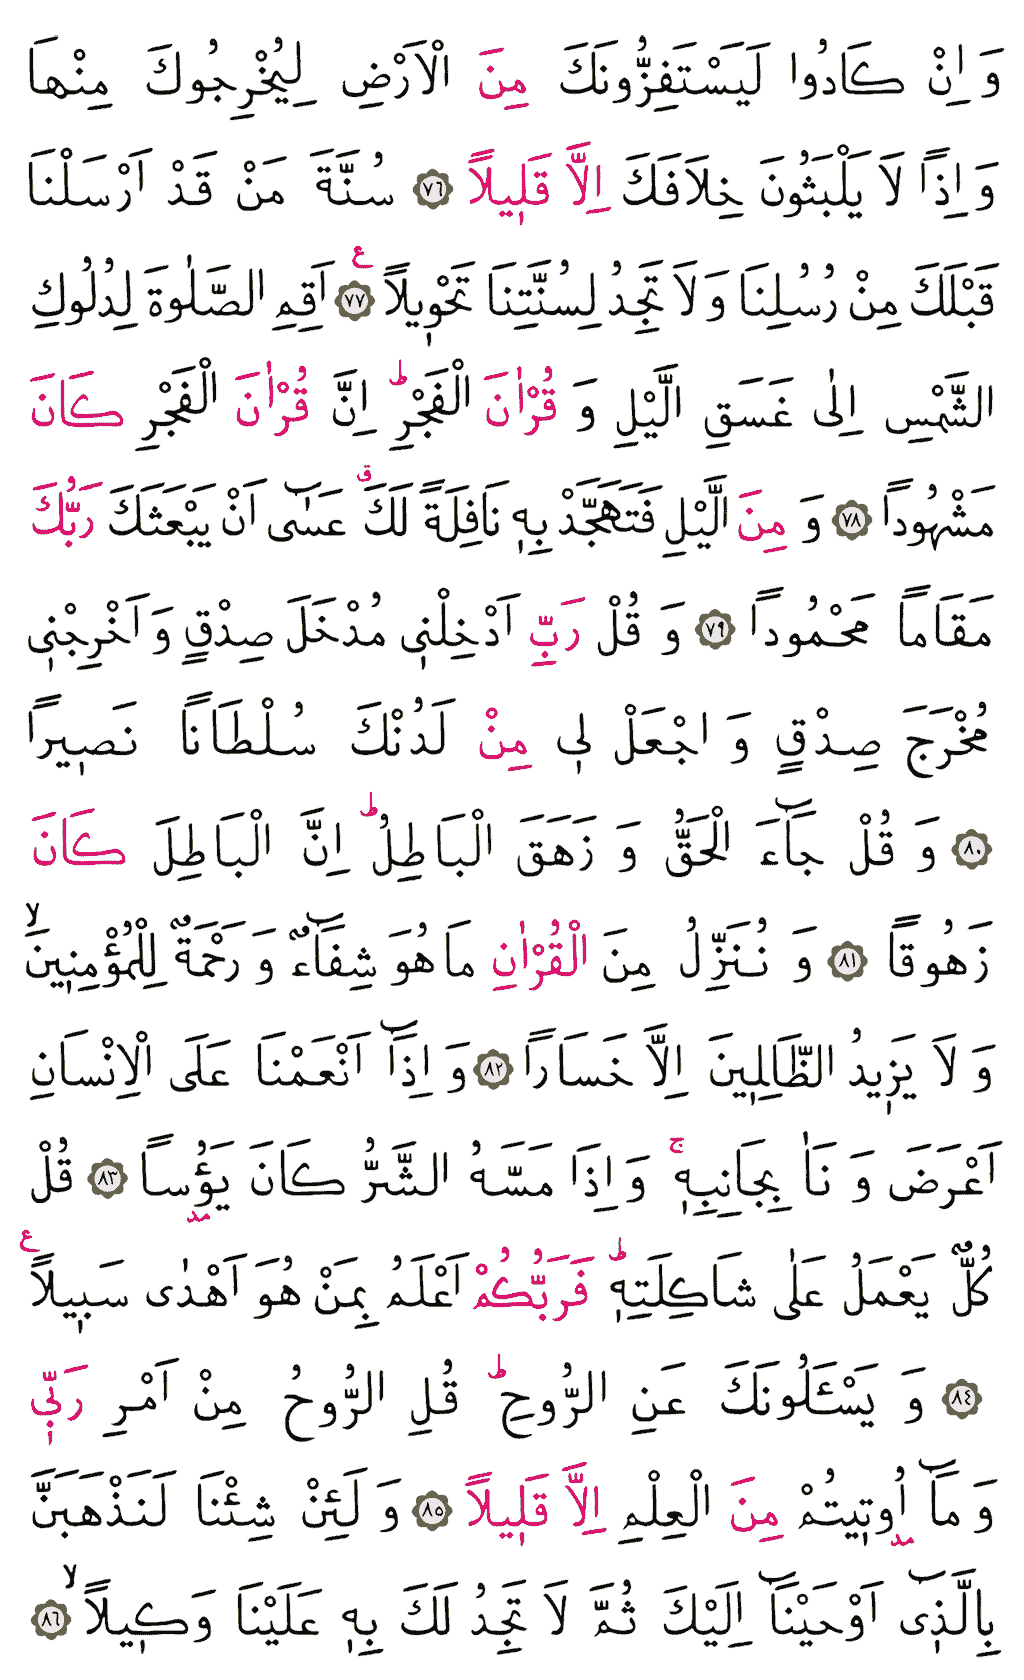 وَ اِنْ كَادُوا لَيَسْتَفِزُّونَكَ مِنَ الْاَرْضِ لِيُخْرِجُوكَ مِنْهَا
وَ اِذًا لَا يَلْبَثُونَ خِلَافَكَ اِلَّا قَلٖيلًا ﴿٧٦﴾ سُنَّةَ مَنْ قَدْ اَرْسَلْنَا
قَبْلَكَ مِنْ رُسُلِنَا وَ لَا تَجِدُ لِسُنَّتِنَا تَحْوٖيلًا ۧ ﴿٧٧﴾ اَقِمِ الصَّلٰوةَ لِدُلُوكِ
الشَّمْسِ اِلٰى غَسَقِ الَّيْلِ وَ قُرْاٰنَ الْفَجْرِ ؕ اِنَّ قُرْاٰنَ الْفَجْرِ كَانَ
مَشْهُودًا ﴿٧٨﴾ وَ مِنَ الَّيْلِ فَتَهَجَّدْ بِهٖ نَافِلَةً لَكَ ࣗ عَسٰٓى اَنْ يَبْعَثَكَ رَبُّكَ
مَقَامًا مَحْمُودًا ﴿٧٩﴾ وَ قُلْ رَبِّ اَدْخِلْنٖى مُدْخَلَ صِدْقٍ وَ اَخْرِجْنٖى
مُخْرَجَ صِدْقٍ وَ اجْعَلْ لٖى مِنْ لَدُنْكَ سُلْطَانًا نَصٖيرًا
﴿٨٠﴾ وَ قُلْ جَٓاءَ الْحَقُّ وَ زَهَقَ الْبَاطِلُ ؕ اِنَّ الْبَاطِلَ كَانَ
زَهُوقًا ﴿٨١﴾ وَ نُنَزِّلُ مِنَ الْقُرْاٰنِ مَا هُوَ شِفَٓاءٌ وَ رَحْمَةٌ لِلْمُؤْمِنٖينَ ۙ
وَ لَا يَزٖيدُ الظَّالِمٖينَ اِلَّا خَسَارًا ﴿٨٢﴾ وَ اِذَٓا اَنْعَمْنَا عَلَى الْاِنْسَانِ
اَعْرَضَ وَ نَاٰ بِجَانِبِهٖ ۚ وَ اِذَا مَسَّهُ الشَّرُّ كَانَ يَؤُسًا مد ﴿٨٣﴾ قُلْ
كُلٌّ يَعْمَلُ عَلٰى شَاكِلَتِهٖ ؕ فَرَبُّكُمْ اَعْلَمُ بِمَنْ هُوَ اَهْدٰى سَبٖيلًا ۧ
﴿٨٤﴾ وَ يَسْـَٔلُونَكَ عَنِ الرُّوحِ ؕ قُلِ الرُّوحُ مِنْ اَمْرِ رَبّٖى
وَ مَٓا اُوتٖيتُمْ مد مِنَ الْعِلْمِ اِلَّا قَلٖيلًا ﴿٨٥﴾ وَ لَئِنْ شِئْنَا لَنَذْهَبَنَّ
بِالَّذٖٓى اَوْحَيْنَٓا اِلَيْكَ ثُمَّ لَا تَجِدُ لَكَ بِهٖ عَلَيْنَا وَكٖيلًا ۙ ﴿٨٦﴾